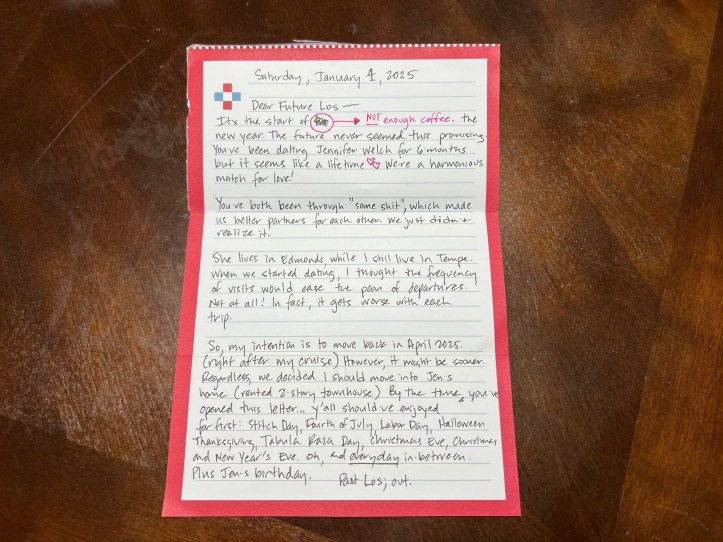 Saturday, January 4, 2025
Dear Future Los —
It's the start of → NOT enough coffee. the
new year. The future never seemed this promising.
You've been dating Jennifer Welch for 6 months
but it seems like a lifetime We're a harmonious
match for love!
You've both been through "some shit", which made
us better partners for each other. We just didn't
realize it.
She lives in Edmonds, while I still live in Tempe.
When we started dating, I thought the frequency
of visits would ease the pain of departures.
Not at all! In fact, it gets worse with each
trip.
So, my intention is to move back in April 2025.
(right after my cruise) However, it might be sooner.
Regardless, we decided I should move into Jen's
home (rented 2-story townhouse) By the time, you've
opened this letter... y'all should've enjoyed
for first: Stitch Day, Fourth of July, Labor Day, Halloween
Thanksgiving, Tabula Rasa Day, Christmas Eve, Christmas
and New Year's Eve. Oh, and everyday in-between.
Plus Jen's birthday.
Past Los; out.